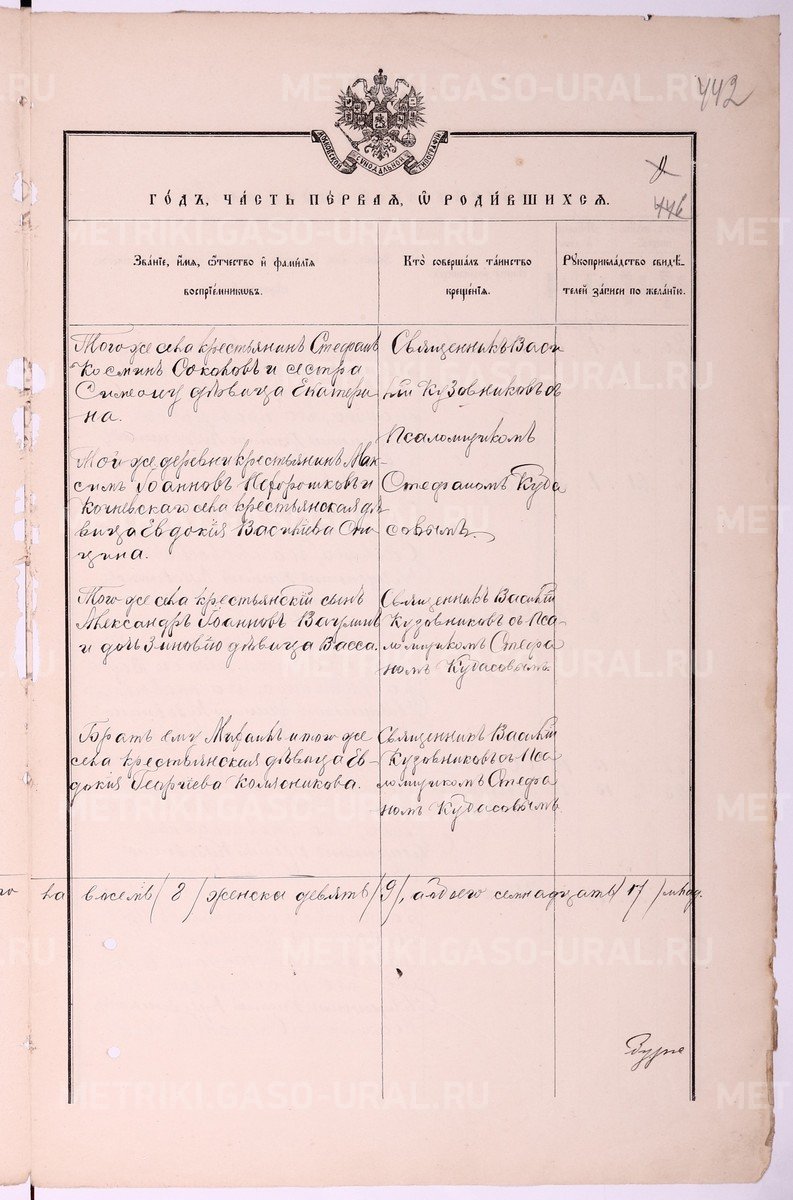 METRIKI.GASO-URAL.RU
442
МОСКОВСКОЙ СѴНОДАЛЬНОЙ ТИПОГРАФІИ
446
ГО́ДЪ, ЧА́СТЬ ПЕ́РВАЯ, Ѡ҆ РОДИ́ВШИХСѦ.
Зва́нїе, и҆́мѧ, ѻ҆́тчество и҆ фами́лїѧ
воспрїе́мниковъ.
Кто̀ соверша́лъ та́инство
креще́нїѧ.
Рꙋкоприкла́дство свидѣ́-
телей за́писи по жела́нїю.
Того же села крестьянинъ Стефанъ
Косминъ Соколовъ и сестра
Симеону дѣвица Екатери
на.
Священникъ Васи
лій Кузовниковъ съ
Псаломщикомъ
Стефаномъ Куба
совымъ.
Той же деревни крестьянинъ Мак-
симъ Іоанновъ и
Кочневскаго села крестьянская дѣ
вица Евдокія Василіева Спи
цина.
Того же села крестьянскій сынъ
Александръ Іоанновъ
и дочь Зиновію дѣвица Васса.
Священникъ Василій
Кузовниковъ съ Пса-
ломщикомъ Стефа
номъ Кубасовымъ.
Братъ ему и того же
села крестьянская дѣвица Ев
докія Георгіева Колясникова.
Священникъ Василій
Кузовниковъ съ Пса
ломщикомъ Стефа
номъ Кубасовымъ.
восемь (8) женска девять (9), а обоего семнадцать (17) млад.